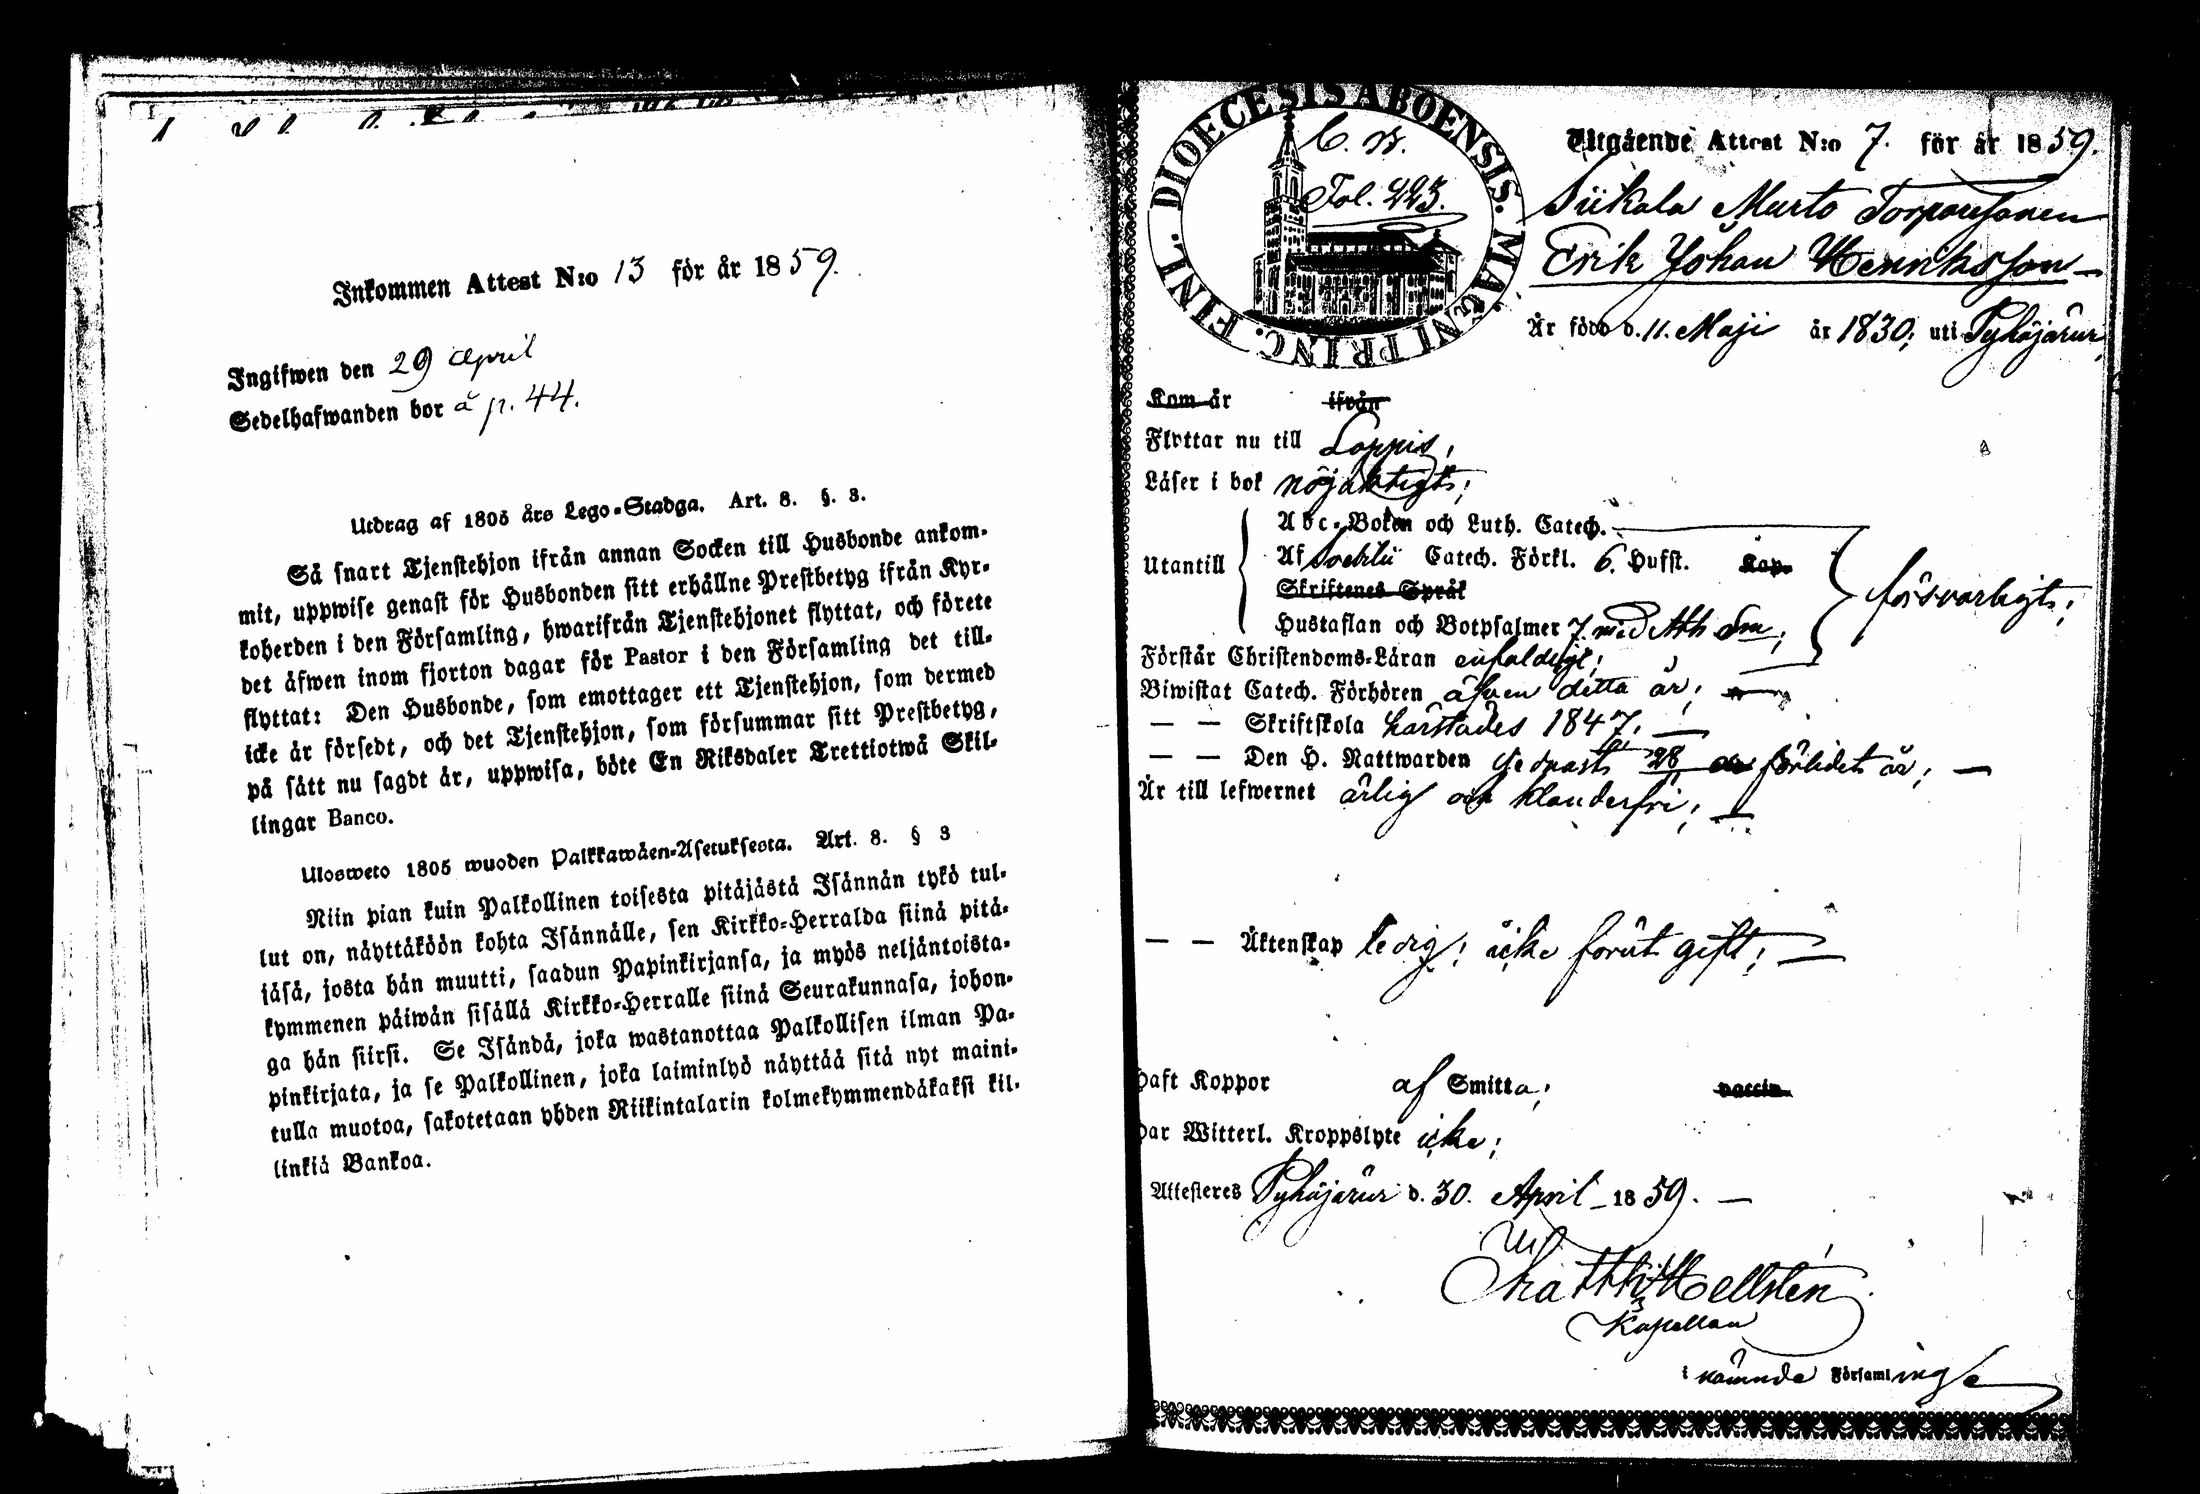 Inkommen Attest N:o 13 för år 1859.
Ingifwen den 29 April
Sedelhafwanden bor å p. 44.
Utdrag af 1805 års Lego-Stadga. Art. 8. §. 3.
Så snart Tjenstehjon ifrån annan Socken till Husbonde ankom-
mit, uppwise genast för Husbonden sitt erhållne Prestbetyg ifrån Kyr-
koherden i den Församling, hwarifrån Tjenstehjonet flyttat, och förete
det äfwen inom fjorton dagar för Pastor i den Församling det till-
flyttat: Den Husbonde, som emottager ett Tjenstehjon, som dermed
icke är försedt, och det Tjenstehjon, som försummar sitt Prestbetyg,
på sätt nu sagdt är, uppwisa, böte En Riksdaler Trettiotwå Skil-
lingar Banco.
Ulosweto 1805 wuoden Palkkawäen-Asetuksesta. Art. 8. § 3
Niin pian kuin Palkollinen toisesta pitäjästä Isännän tykö tul-
lut on, näyttäköön kohta Isännälle, sen Kirkko-Herralda siinä pitä-
jäsä, josta hän muutti, saadun Papinkirjansa, ja myös neljäntoista-
kymmenen päiwän sisällä Kirkko-Herralle siinä Seurakunnasa, johon-
ga hän siirsi. Se Isändä, joka wastanottaa Palkollisen ilman Pa-
pinkirjata, ja se Palkollinen, joka laiminlyö näyttää sitä nyt maini-
tulla muotoa, sakotetaan yhden Riikintalarin kolmekymmendäkaksi kil-
linkiä Bankoa.
DIOECESIS ABOENSIS. MAGNI PRINC. FINL.
Fol. 223.
Utgående Attest N:o 7. för år 1859.
Siikala Murto Torparesonen
Erik Johan Henriksson
Är född d. 11. Maji år 1830; uti Pyhäjärwi
Kom år ifrån
Flyttar nu till Loppis;
Läser i bok nöjaktigt;
Utantill
Abc-Boken och Luth. Catech.
Af Svebilii Catech. Förkl. 6. Hufst. Kap.
Skriftenes Språk
försvarligt;
Hustaflan och Botpsalmer 7. med Ath Sm;
Förstår Christendoms-Läran enfaldigt;
Biwistat Catech. Förhören äfven detta år;
— — Skriftskola härstädes 1847;
— — Den H. Nattwarden sednast 28 förlidet år;
Är till lefwernet ärlig och klanderfri;
— — Äktenskap ledig; icke förut gift;
Haft Koppor af Smitta; vaccin.
Har Witterl. Kroppslyte icke;
Attesteres Pyhäjärwi d. 30. April 1859.
Matth: Hellstén
Kapellan
i nämnde Församlinge